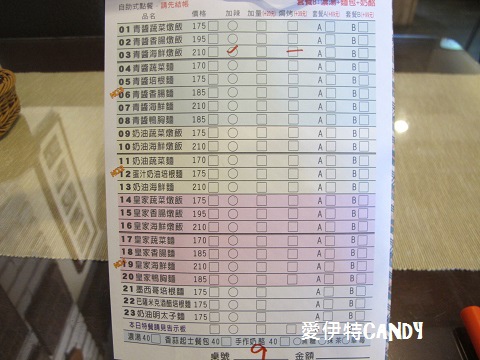 自助式點餐 請先結帳 套餐B:濃湯+麵包+奶酪
品名 價格 加辣 加量 焗烤 套餐A 套餐B
01 青醬蔬菜燉飯 175 A B
02 青醬香腸燉飯 195 A B
03 青醬海鮮燉飯 210 A B
04 青醬蔬菜麵 170 A B
05 青醬培根麵 175 A B
06 青醬香腸麵 185 A B
07 青醬海鮮麵 210 A B
08 青醬鴨胸麵 185 A B
09 奶油蔬菜燉飯 175 A B
10 奶油海鮮燉飯 210 A B
11 奶油蔬菜麵 170 A B
12 蛋汁奶油培根麵 175 A B
13 奶油海鮮麵 210 A B
14 皇家蔬菜燉飯 175 A B
15 皇家香腸燉飯 195 A B
16 皇家海鮮燉飯 210 A B
17 皇家蔬菜麵 170 A B
18 皇家香腸麵 185 A B
19 皇家海鮮麵 210 A B
20 皇家鴨胸麵 185 A B
21 墨西哥培根麵 175 A B
22 巴薩米克酒醋培根麵 175 A B
23 奶油明太子麵 175 A B
本日特餐請見告示板
濃湯 40 香菇起士餐包 40 手作奶酪 40
愛伊特CANDY
桌號 9 金額